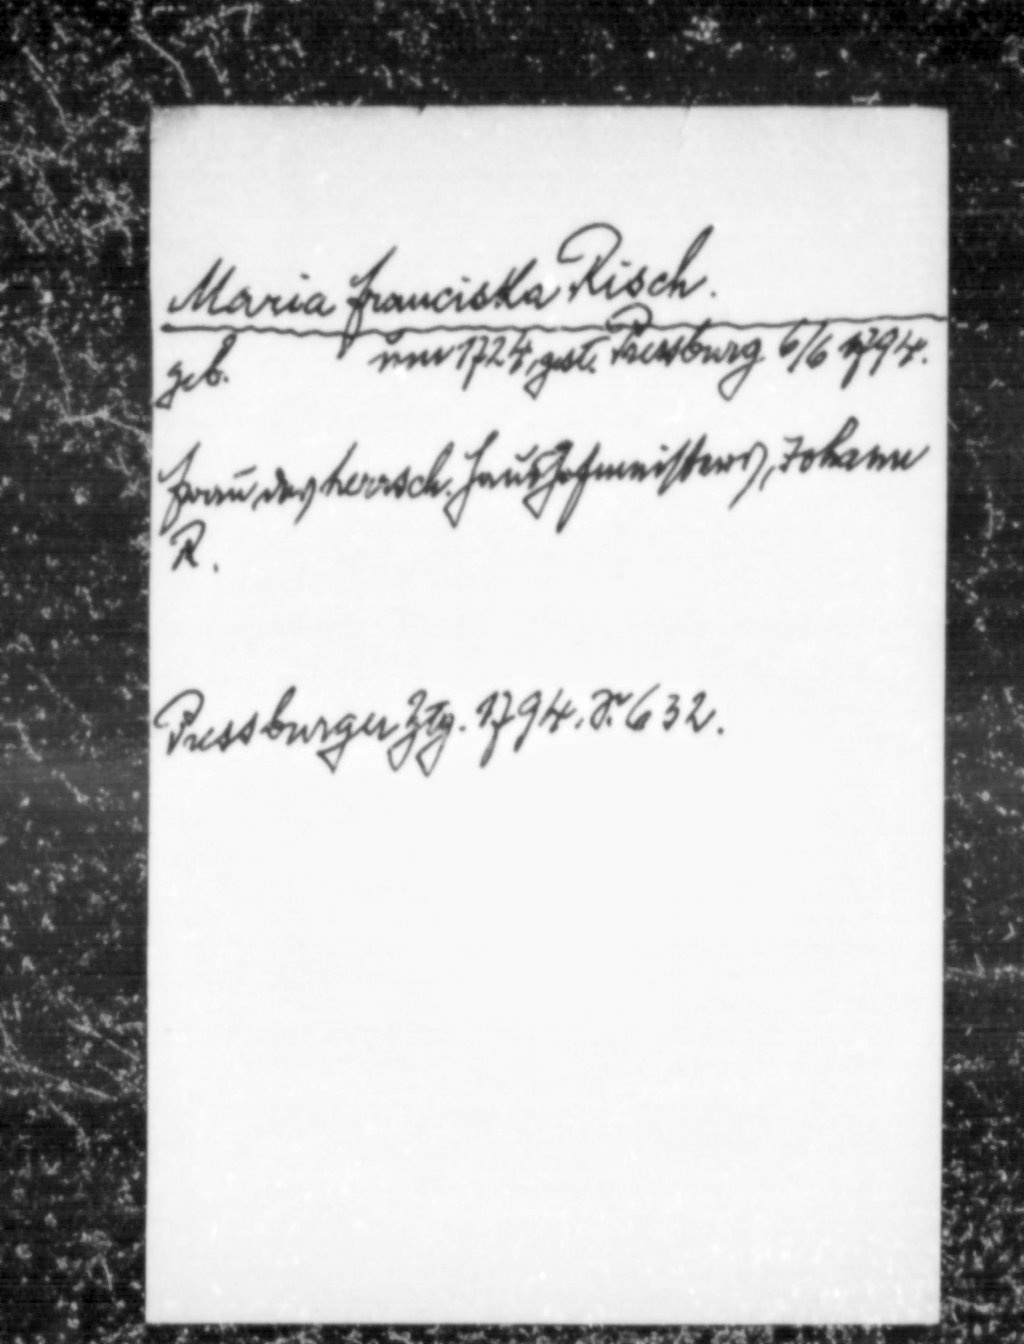 Maria Franciska Risch.
geb. um 1724, gest. Pressburg 6/6 1794.
Frau des herrsch. Haushofmeisters, Johann
R.
Pressburger Ztg. 1794. S. 632.